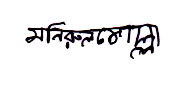 মনিরুল মোল্লা